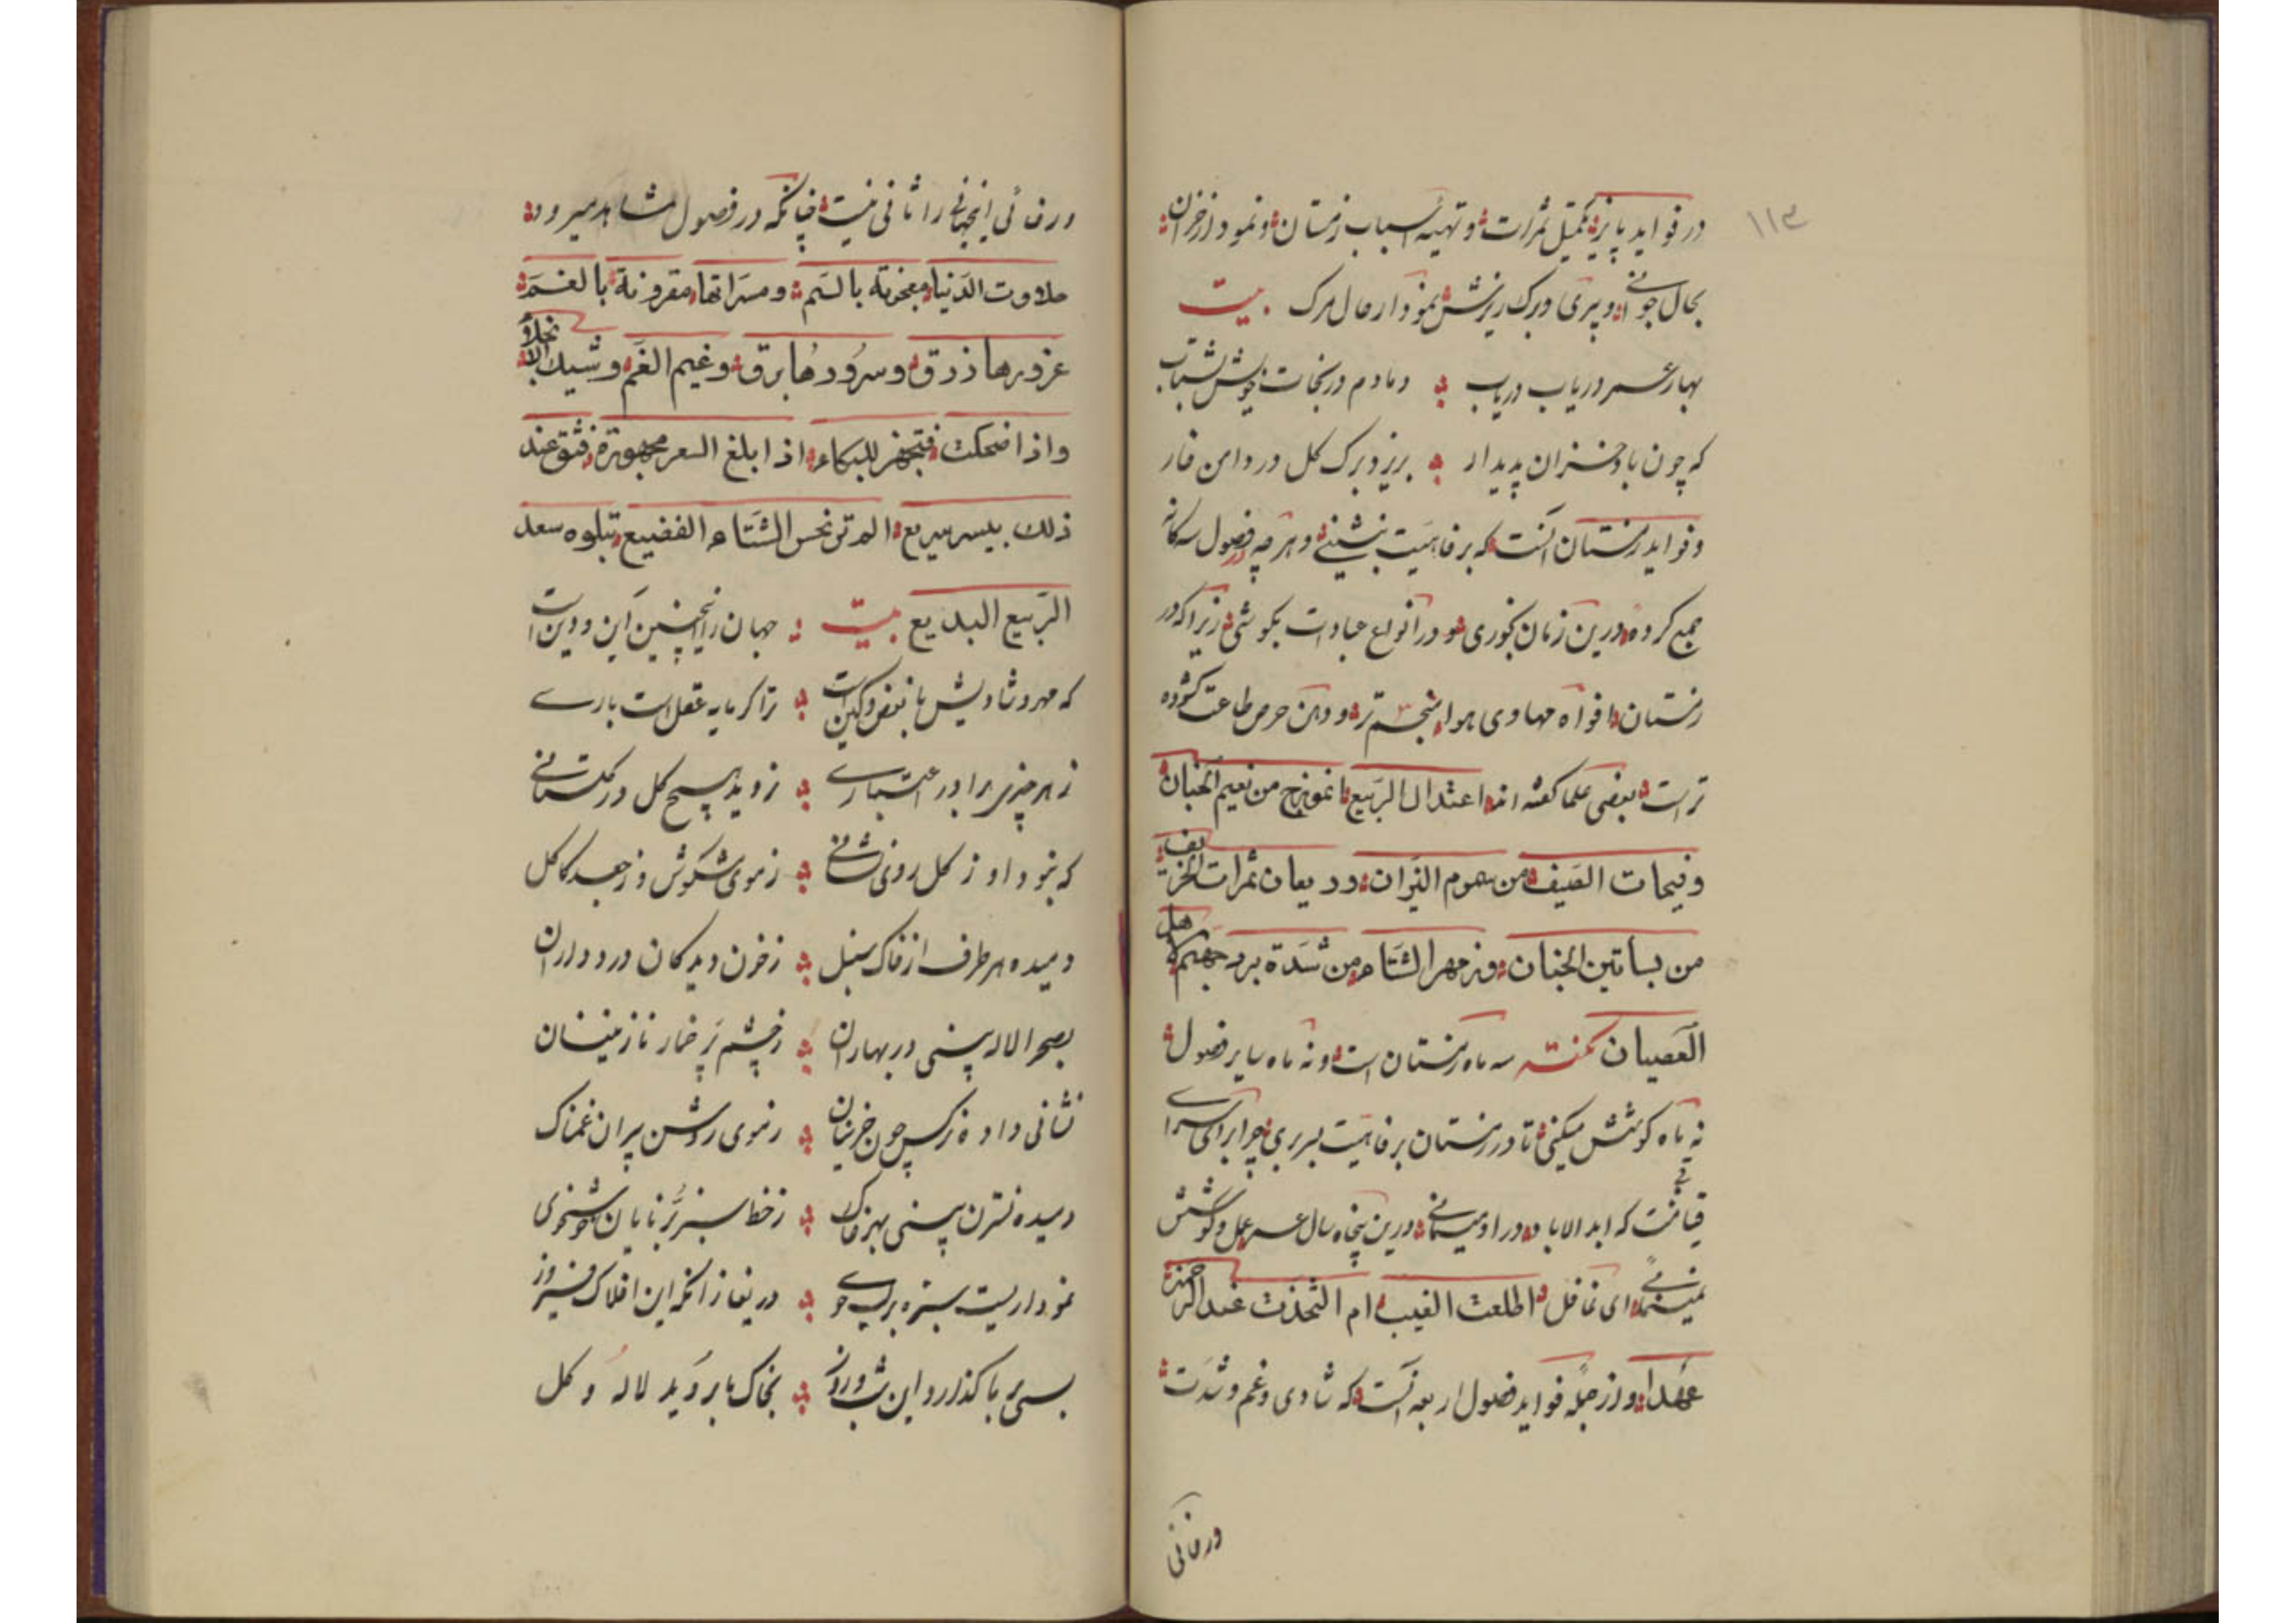 ۱۱۳
در فواید پاییز تکمیل ثمرات و تهیه اسباب زمستان و نمودار خزان
بحال جوانی و پیری و برک ریزش نمودار حال مرک بیت
بهار عمر دریاب دریاب دمادم در نجات خویش بشتاب
که چون باد خزان پدیدار بریزد برک کل در دامن خار
و فواید زمستان آنست که برفاهیت بنشینی و هرچه در فصول سه کانه
جمع کرده درین زمان بخوری و در انواع عبادات بکوشی زیرا که در
زمستان افواه مهاوی هوا تر و دهن حرص طاعت کشوده
تر است بعضی علما کفته اند اعتدال الربیع انموزج من نعیم الجنان
وفیحات الصیف من سموم النیران وریعان ثمرات الخریف
من بساتین الجنان وزمهر الشتاء من شدة برد جهنم لاهل
العصیان نکته سه ماه زمستان است و نه ماه سایر فصول
نه ماه کوشش میکنی تا در زمستان برفاهیت بسر بری چرا برای سرای
قیامت که ابد الاباد در او میمانی درین پنجاه سال عمر عمل و کوشش
نمینمائی ای غافل اطلعت الغیب ام اتخذت عند الرحمن
عهدا و از جمله فواید فصول اربعه آنست که شادی و غم و شدت
در فانی
ور فانی اینجهانی را ثانی نیست چنانکه در فصول مشاهد میرود
حلاوت الدنیا معجونة بالسم ومسراتها مقرونة بالغم
غرورها زرق وسرورها برق وغیم الغم
واذا ضحکت فتجهز للبکاء اذا بلغ السعر مجهوزة فثق عند
ذلك بیسر سریع الم تر نحس الشتاء الفضیع تبلوه سعد
الربیع البدیع بیت جهان را اینچنین آئین و دین است
که مهر و شادیش با بغض و کین است ترا کر مایه عقل است باری
ز هر چیزی برا در اعتباری نروید هیچ کل در کلستانی
که نبود او ز کل روئی نشانی ز موی شکوش و ز جعد کاکل
دمیده هر طرف از خاک سنبل ز خون دیدکان درد داران
بصحرا لاله بینی در بهاران ز چشم پر خمار نازنینان
نشانی داده نرکس چون خزینان ز موی روشن پیران غمناک
دمیده نسترن بینی بهر خاک ز خط سبز برنایان خوشخوی
نموداریست سبزه بر لب جوی دریغا زانکه این افلاک فیروز
بسی بر ما کذارد این شب و روز بخاک ما بروید لاله و کل